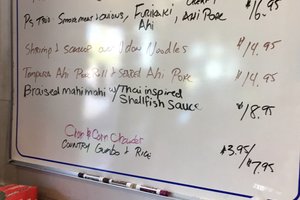 $16.
Furikake, Ahi Poke
Ahi
Shrimp & scallop Udon Noodles $14.95
Tempura Ahi Roll & seared Ahi Poke $14.95
Braised mahimahi w/ Thai inspired
Shellfish Sauce $18.95
Clam & Corn Chowder
Country Gumbo & Rice $3.95/
$7.95